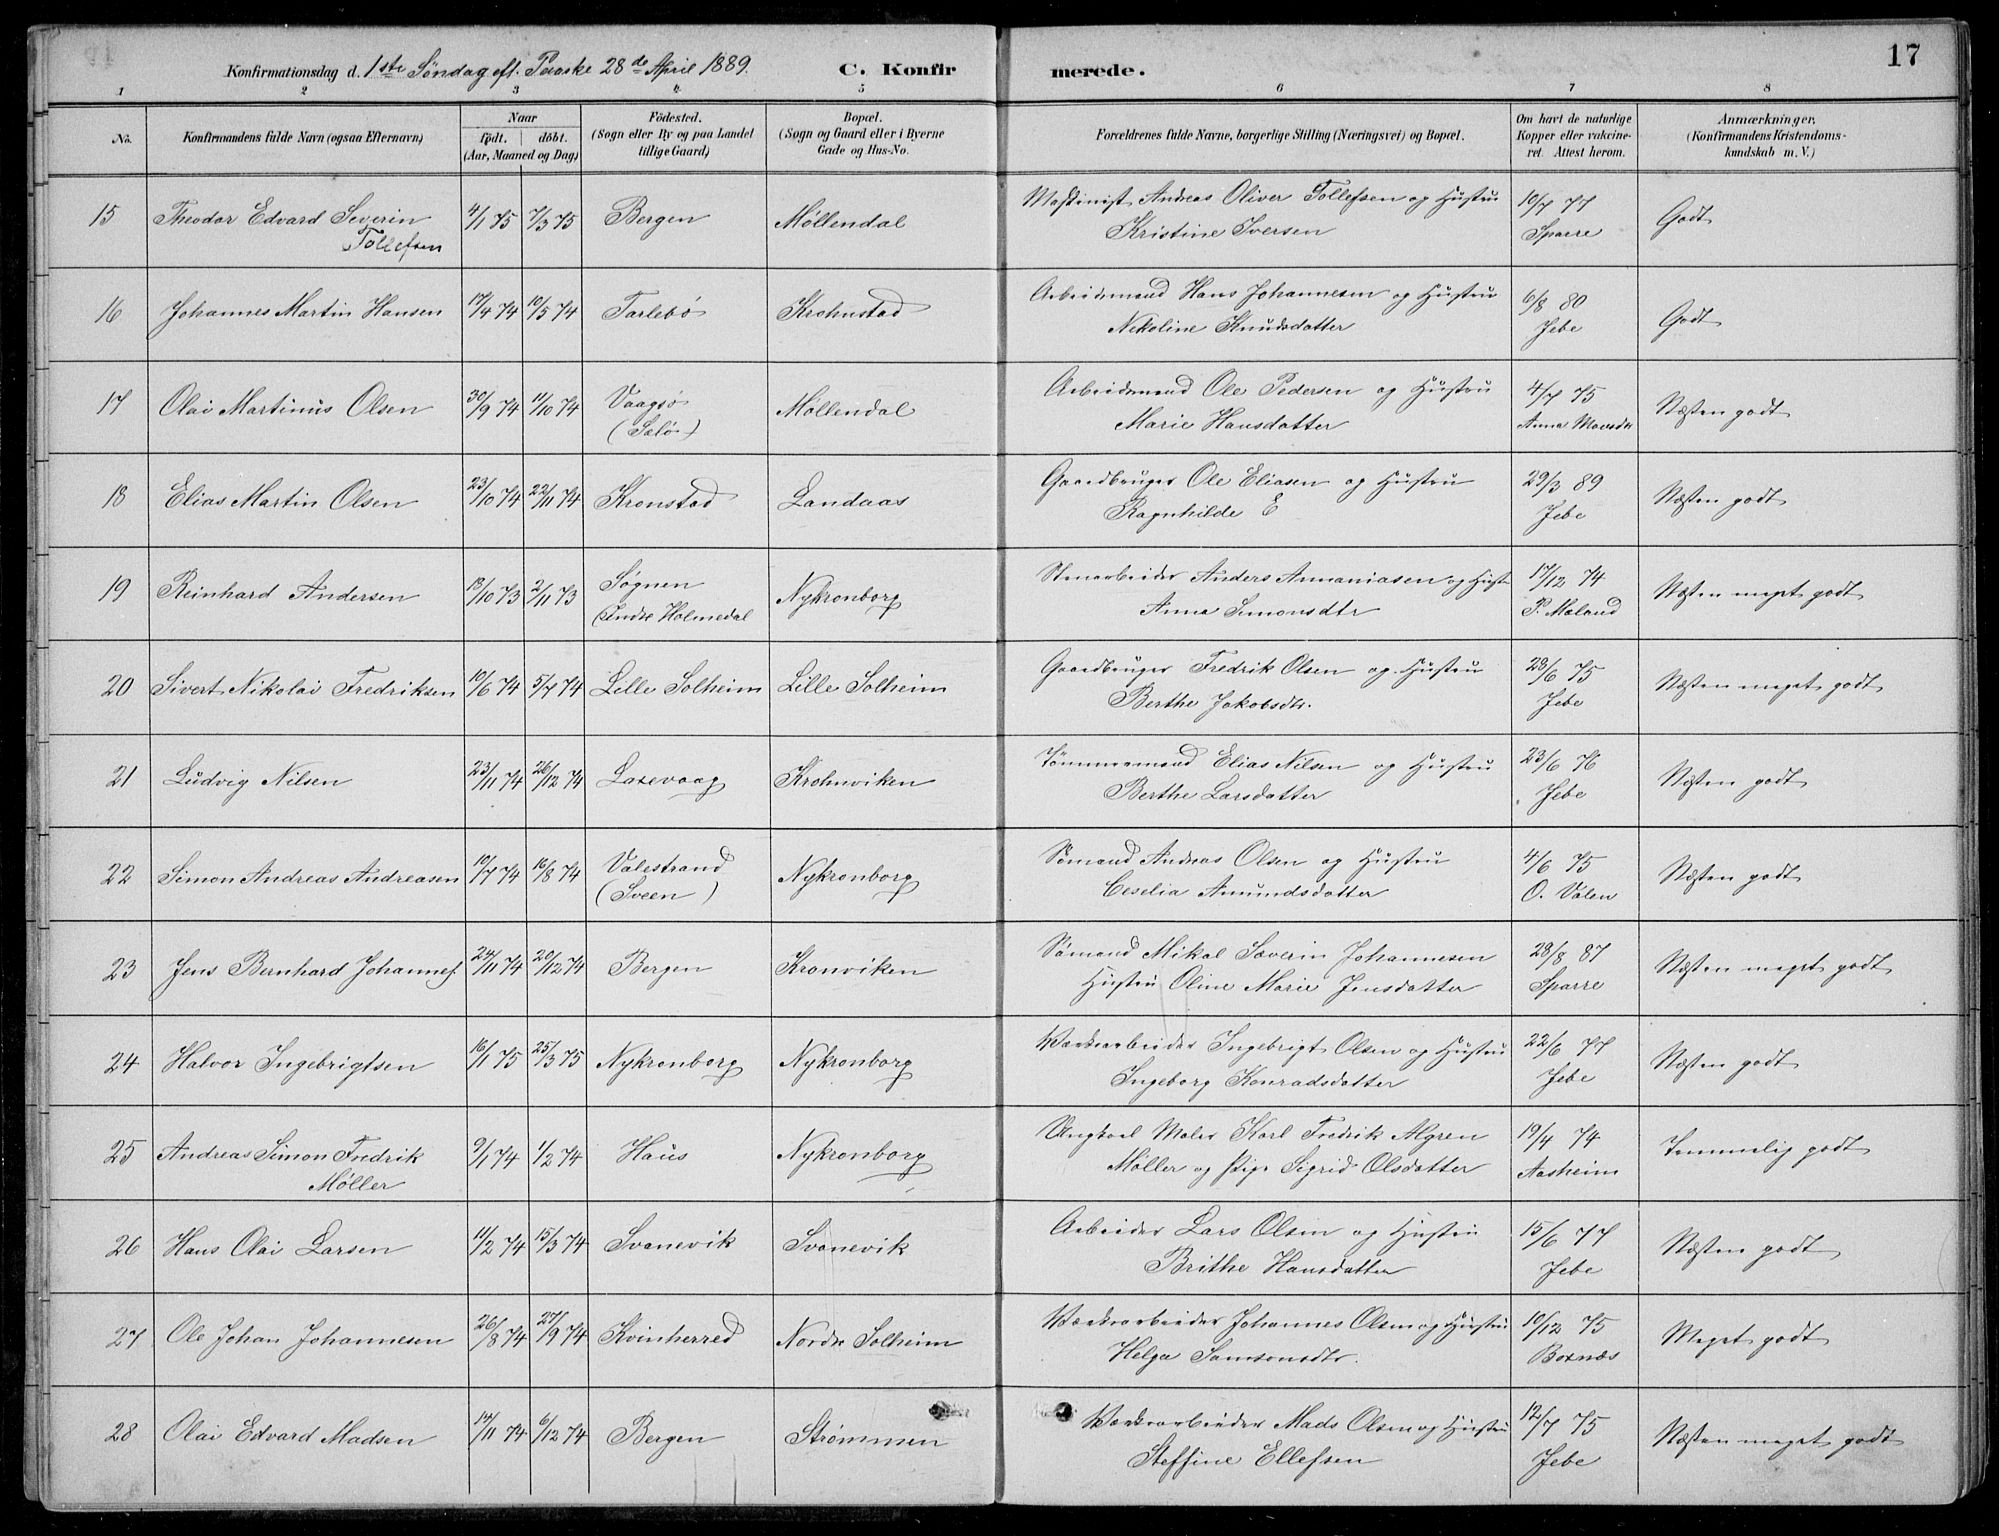 17
Konfirmationsdag d. 1ste Søndag eft. Paaske 28de April 1889. C. Konfirmerede.
1 2 3 4 5 6 7 8
No. | Konfirmandens fulde Navn (ogsaa Efternavn) | Naar født. døbt. (Aar, Maaned og Dag) | Fødested. (Sogn eller By og paa Landet tillige Gaard) | Bopæl. (Sogn og Gaard eller i Byerne Gade og Hus-No. | Forældrenes fulde Navne, borgerlige Stilling (Næringsvei) og Bopæl. | Om havt de naturlige Kopper eller vakcineret. Attest herom. | Anmærkninger. (Konfirmandens Kristendomskundskab m. V.)
15 | Theodor Edvard Severin Tollefsen | 4/1 75 | 7/3 75 | Bergen | Møllendal | Maskinist Andreas Oliver Tollefsen og Hustru Kristine Iversen | 10/7 77 Sparre | Godt
16 | Johannes Martin Hansen | 17/4 74 | 10/5 74 | Tarlebø | Krohnstad | Arbeidsmand Hans Johannesen og Hustru Nikoline Knudsdatter | 6/8 80 Jebe | Godt
17 | Olai Martinus Olsen | 30/9 74 | 11/10 74 | Vaagsø (Sælø) | Møllendal | Arbeidsmand Ole Pedersen og Hustru Marie Hansdatter | 4/7 75 Anna | Næsten godt
18 | Elias Martin Olsen | 23/10 74 | 22/11 74 | Kronstad | Landaas | Gaardbruger Ole Eliasen og Hustru Ragnhilde E | 29/3 89 Jebe | Næsten godt
19 | Reinhard Andersen | 13/10 73 | 2/11 73 | Søgnen (Indre Holmedal | Nykronborg | Stenarbeider Anders Annaniasen og Hust. Anna Simonsdtr | 17/12 74 P. Mæland | Næsten meget godt
20 | Sivert Nikolai Fredriksen | 10/6 74 | 5/7 74 | Lille Solheim | Lille Solheim | Gaardbruger Fredrik Olsen og Hustru Berthe Jakobsdtr. | 23/6 75 Jebe | Næsten meget godt
21 | Ludvig Nilsen | 23/11 74 | 26/12 74 | Laxevaag | Krohnviken | Tømmermand Elias Nilsen og Hustru Berthe Larsdatter | 23/6 76 Jebe | Næsten godt
22 | Simon Andreas Andreasen | 10/7 74 | 16/8 74 | Valestrand (Sveen) | Nykronborg | Sømand Andreas Olsen og Hustru Cecelia Amundsdatter | 4/6 75 O. Valen | Næsten godt
23 | Jens Bernhard Johannes. | 24/11 74 | 20/12 74 | Bergen | Kronviken | Sømand Mikal Sæverin Johannesen Hustru Oline Marie Jensdatter | 28/8 87 Sparre | Næsten meget godt
24 | Halvor Ingebrigtsen | 16/1 75 | 25/3 75 | Nykronborg | Nykronborg | Værksarbeider Ingebrigt Olsen og Hustru Ingeborg Konradsdatter | 22/6 77 Jebe | Næsten godt
25 | Andreas Simon Fredrik Møller | 9/1 74 | 1/2 74 | Haus | Nykronborg | Ungkarl Maler Karl Fredrik Algren Møller og Pige Sigrid Olsdatter | 19/4 74 Aasheim | Temmelig godt
26 | Hans Olai Larsen | 11/2 74 | 15/3 74 | Svanevik | Svanevik | Arbeider Lars Olsen og Hustru Brithe Hansdatter | 15/6 77 Jebe | Næsten godt
27 | Ole Johan Johannesen | 26/8 74 | 27/9 74 | Kvinherred | Nordre Solheim | Værksarbeider Johannes Olsen og Hustru Helga Samsonsdtr. | 10/12 75 Boxnæs | Meget godt
28 | Olai Edvard Madsen | 14/11 74 | 6/12 74 | Bergen | Strømmen | Værksarbeider Mads Olsen og Hustru Steffine Ellefsen | 12/7 75 Jebe | Næsten meget godt